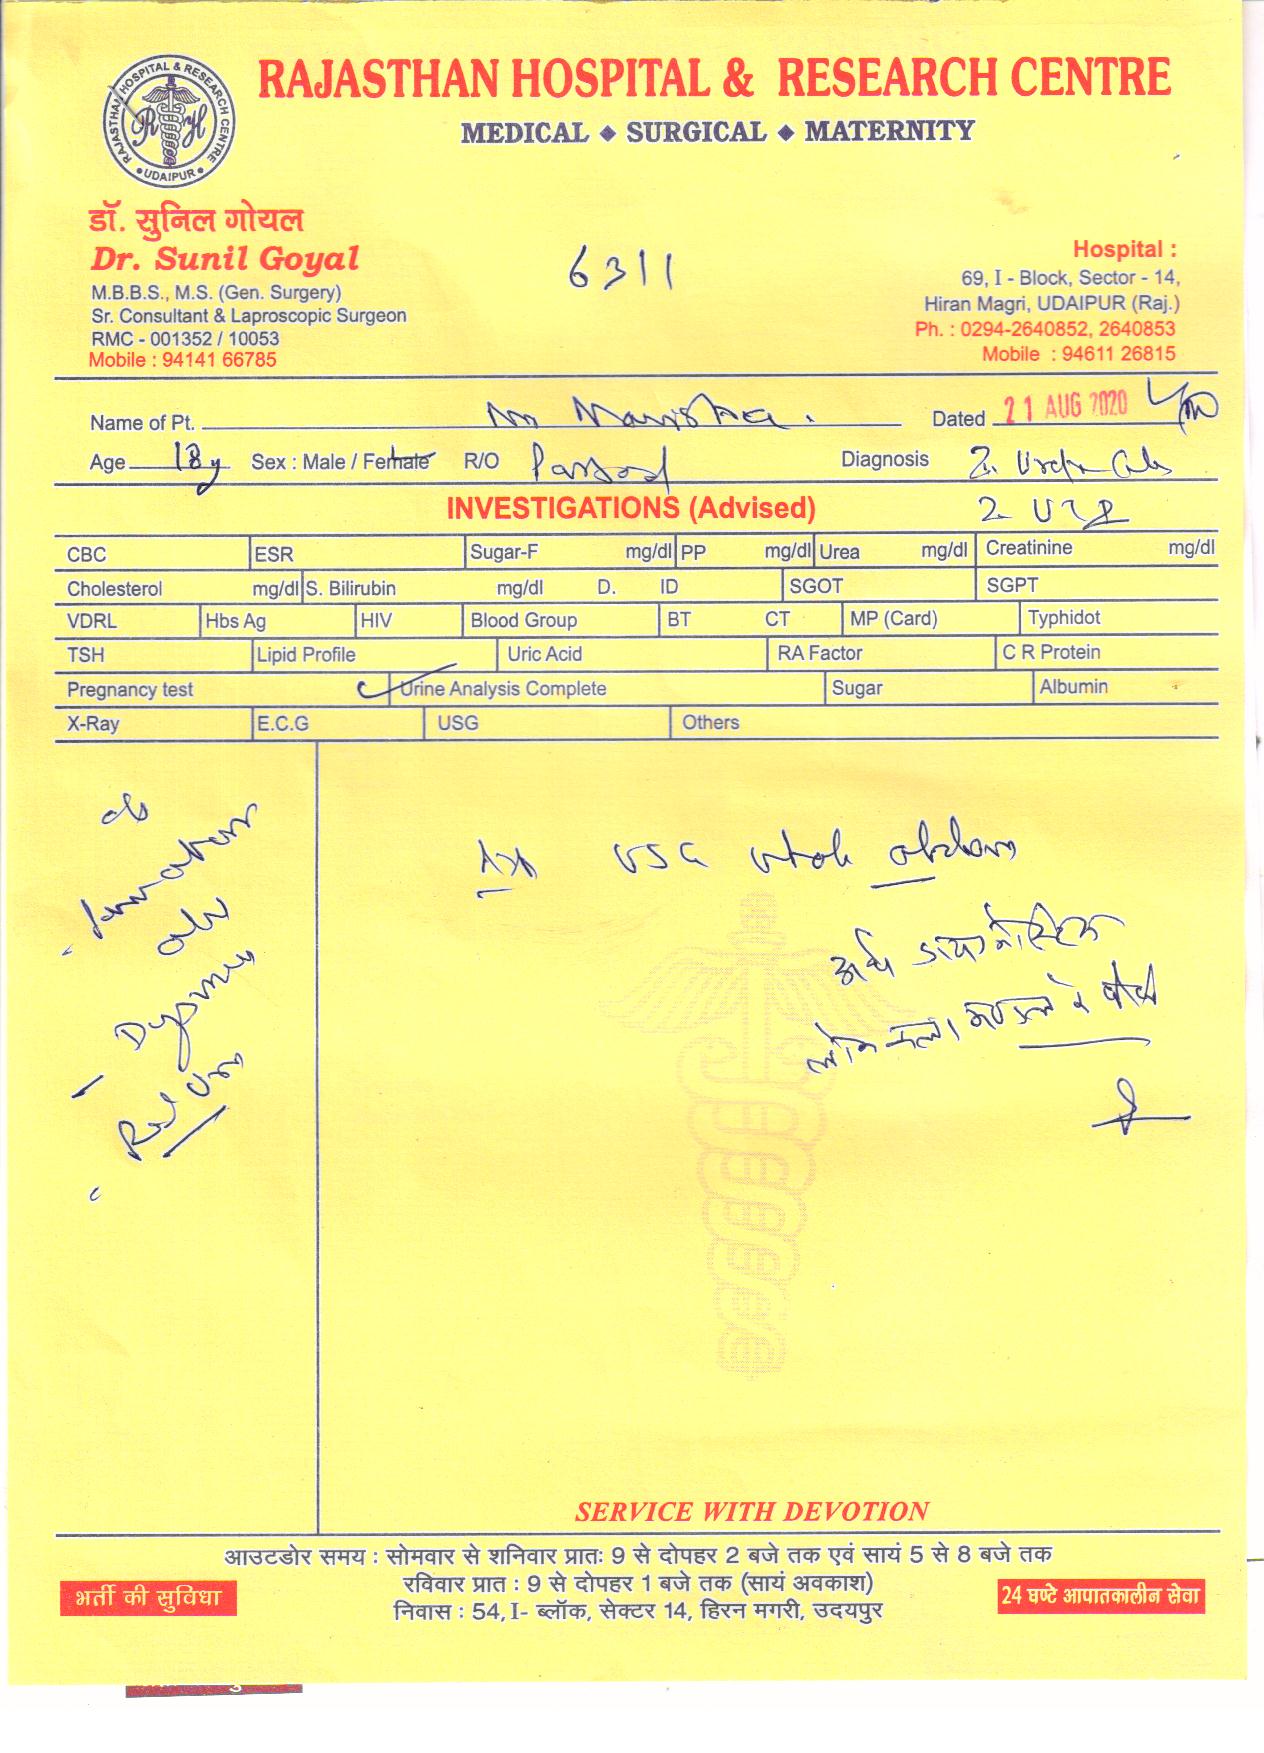 RAJASTHAN HOSPITAL & RESEARCH CENTRE
MEDICAL ◆ SURGICAL ◆ MATERNITY
RAJASTHAN HOSPITAL & RESEARCH CENTRE
• UDAIPUR •
डॉ. सुनिल गोयल
Dr. Sunil Goyal
M.B.B.S., M.S. (Gen. Surgery)
Sr. Consultant & Laproscopic Surgeon
RMC - 001352 / 10053
Mobile : 94141 66785
6311
Hospital :
69, I - Block, Sector - 14,
Hiran Magri, UDAIPUR (Raj.)
Ph. : 0294-2640852, 2640853
Mobile : 94611 26815
Name of Pt. Dated 21 AUG 2020
Age 18y Sex : Male / Female R/O Diagnosis
INVESTIGATIONS (Advised)
CBC ESR Sugar-F mg/dl PP mg/dl Urea mg/dl Creatinine mg/dl
Cholesterol mg/dl S. Bilirubin mg/dl D. ID SGOT SGPT
VDRL Hbs Ag HIV Blood Group BT CT MP (Card) Typhidot
TSH Lipid Profile Uric Acid RA Factor C R Protein
Pregnancy test Urine Analysis Complete Sugar Albumin
X-Ray E.C.G USG Others
USG whole abdomen
SERVICE WITH DEVOTION
आउटडोर समय : सोमवार से शनिवार प्रातः 9 से दोपहर 2 बजे तक एवं सायं 5 से 8 बजे तक
रविवार प्रात : 9 से दोपहर 1 बजे तक (सायं अवकाश)
निवास : 54, I- ब्लॉक, सेक्टर 14, हिरन मगरी, उदयपुर
भर्ती की सुविधा
24 घण्टे आपातकालीन सेवा